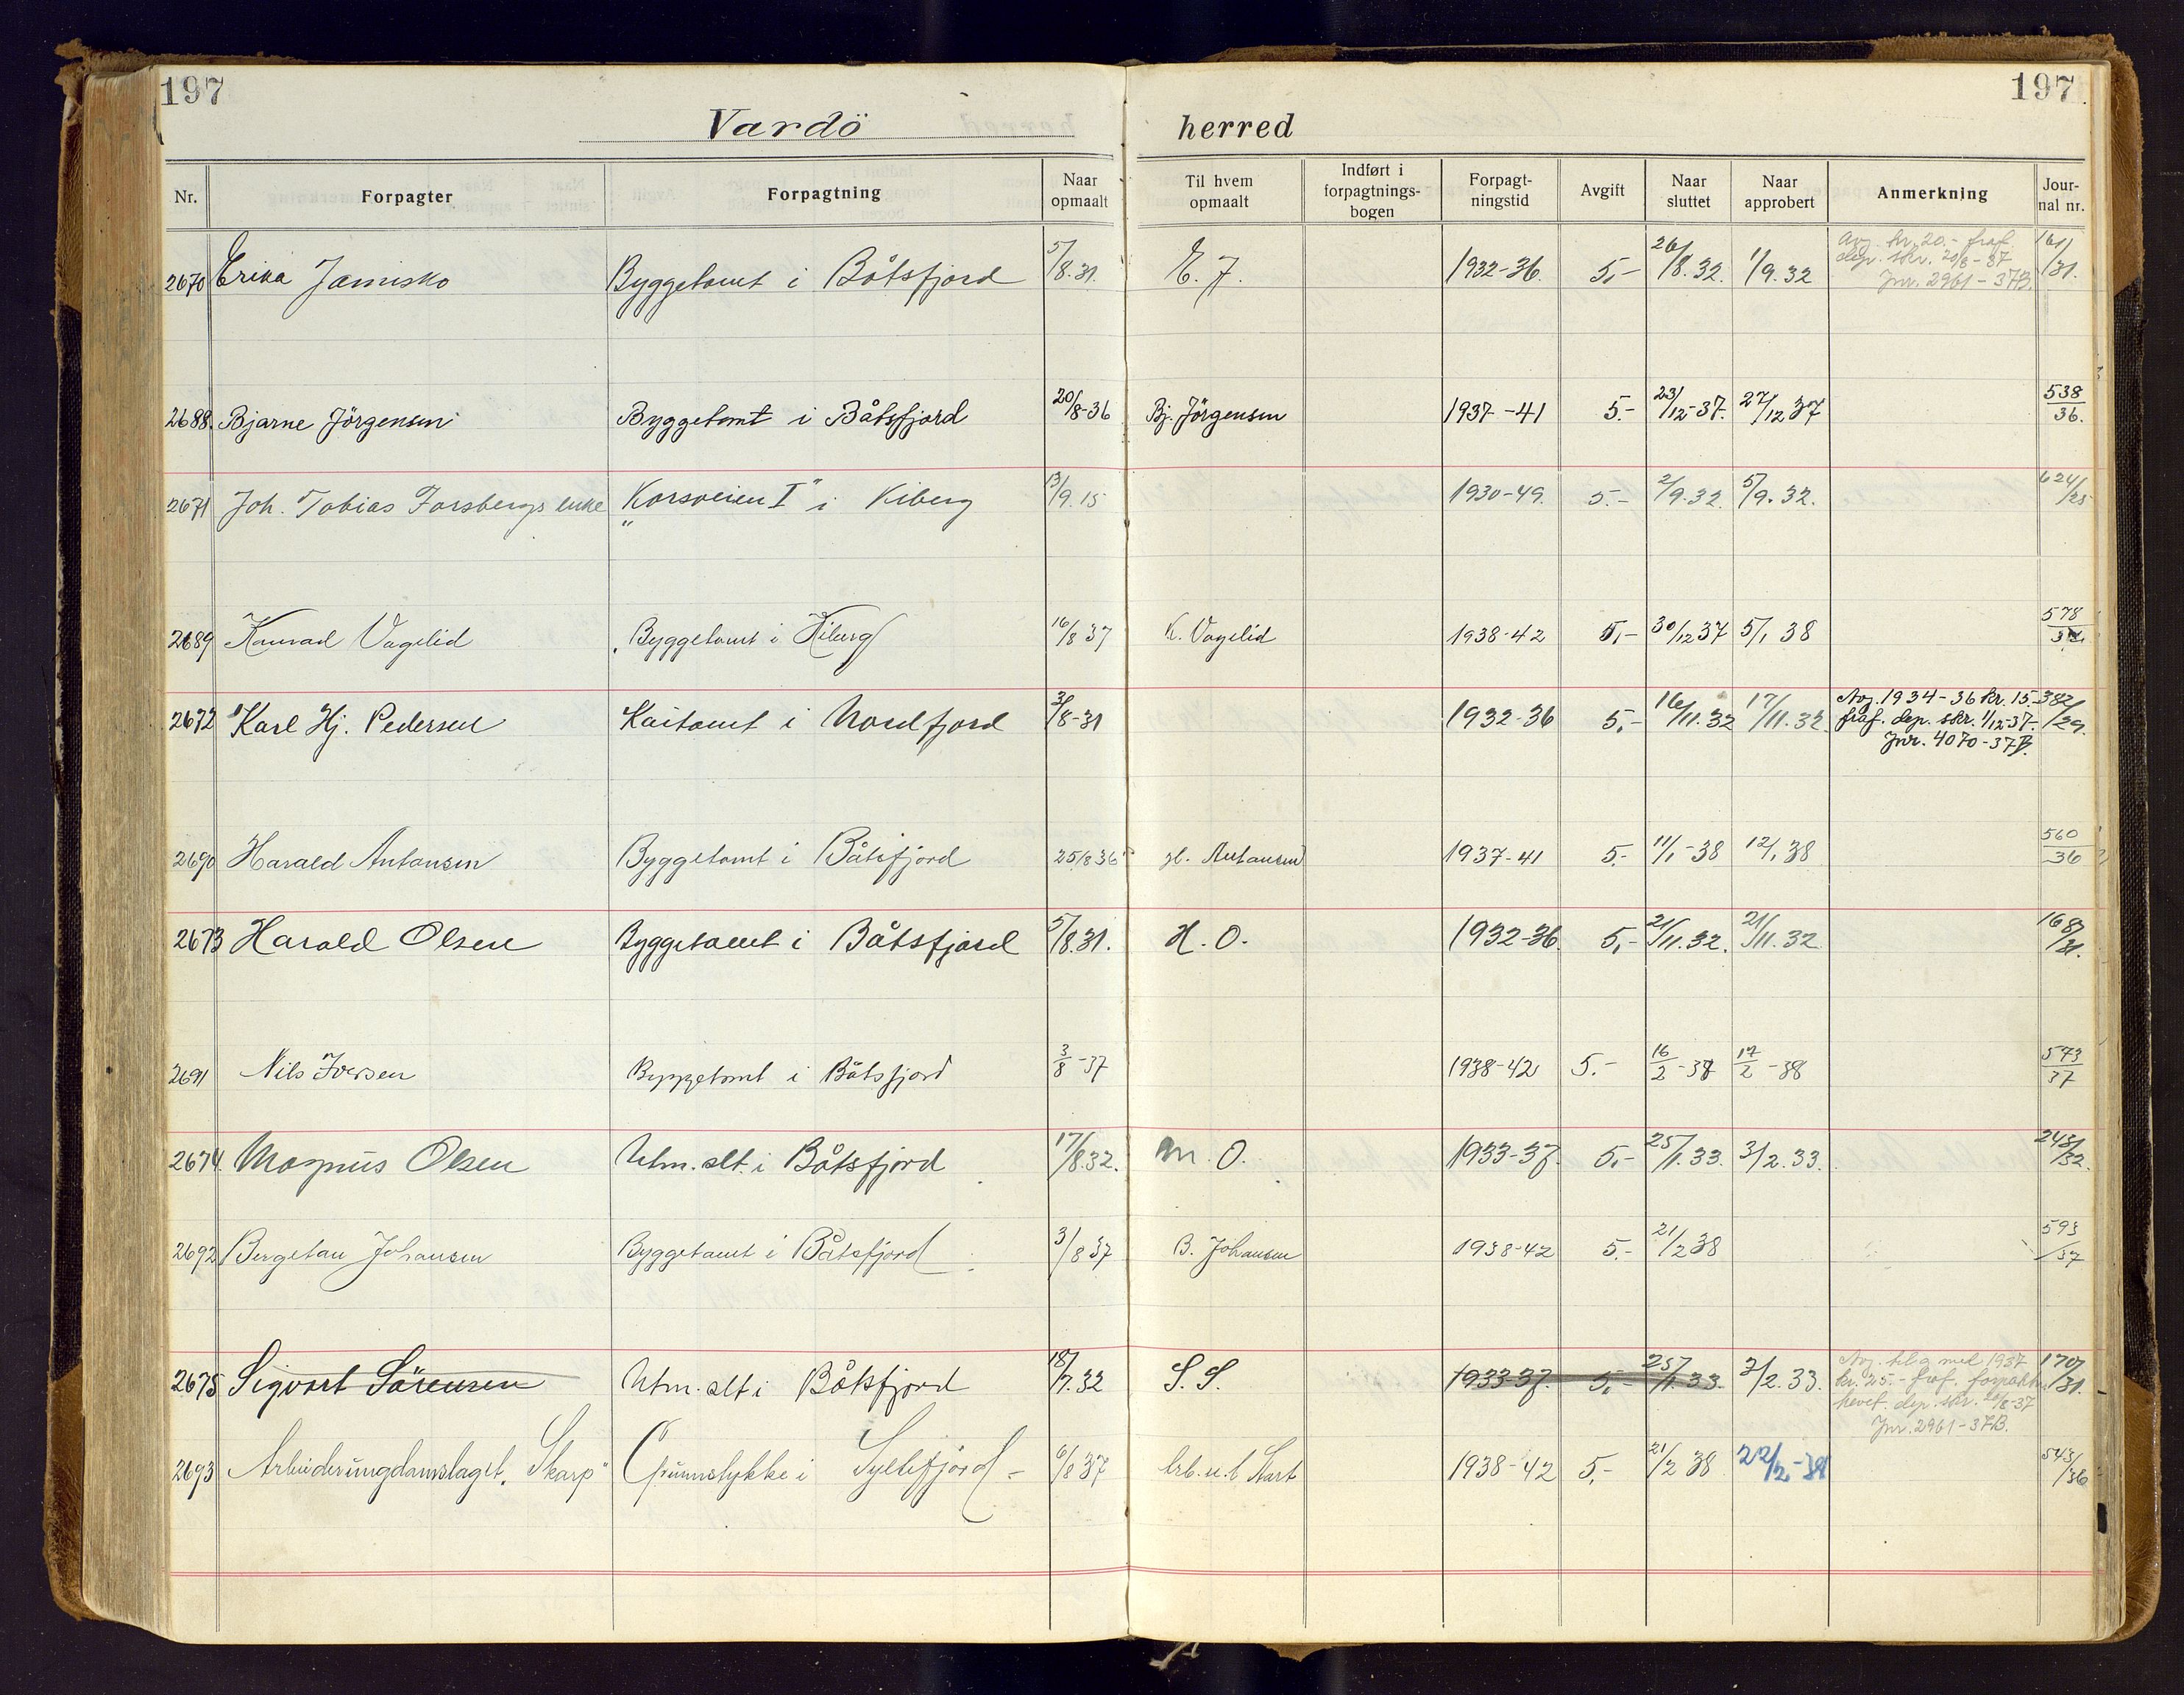 197
197
Vardö herred
Nr. Forpagter Forpagtning Naar opmaalt Til hvem opmaalt Indført i forpagtnings-bogen Forpagt-ningstid Avgift Naar sluttet Naar approbert Anmerkning Jour-nal nr.
2670 Erika Jamisko Byggetomt i Båtsfjord 5/8.31. E. J. 1932-36 5,- 26/8.32. 1/9.32 Avg. kr. 20.- fraf. 161/31.
dep. skr. 20/8-37
Jnr. 2961-37B.
2688. Bjarne Jörgensen Byggetomt i Båtsfjord 20/8-36 Bj. Jörgensen 1937-41 5.- 23/12-37. 27/12 37 538/36.
2671 Joh. Tobias Forsbergs enke "Korsveien I" i Kiberg 13/9.15 1930-49. 5.- 2/9.32. 5/9.32. 624/25
2689 Konrad Vagelid Byggetomt i Kiberg 16/8 37 K. Vagelid 1938-42 5,- 30/12 37 5/1 38 578
2672 Karl Hj. Pedersen Kaitomt i Nordfjord 3/8-31 1932-36 5,- 16/11.32 17/11.32. Avg. 1934-36 kr. 15.- 382/29.
fraf. dep. skr. 1/12-37.
Jnr. 4070-37B.
2690 Harald Antonsen Byggetomt i Båtsfjord 25/8 36 H. Antonsen 1937-41 5.- 11/1-38 12/1 38 560/36
2673 Harald Olsen Byggetomt i Båtsfjord 5/8.31. H. O. 1932-36. 5,- 21/11.32. 21/11.32 168/31.
2691 Nils Iversen Byggetomt i Båtsfjord 3/8-37 1938-42 5.- 16/2-38 17/2-38 573/37
2674. Magnus Olsen Utm. slt. i Båtsfjord 17/8.32. M. O. 1933-37. 5,- 25/1.33. 3/2.33. 243/32.
2692 Bergetau Johansen Byggetomt i Båtsfjord 3/8 37 B. Johansen 1938-42 5.- 21/2 38 593/37
2675 Sigvart Sörensen Utm. slt i Båtsfjord 18/7.32 S. S. 1933-37. 5,- 25/1.33. 3/2.33. Avg. til o med 1937 170/31.
kr. 25.- fraf. forpaktn.
hevet. dep. skr. 20/8-37
Jnr. 2961-37B.
2693 Arbeiderungdomslaget "Skarp" Grunnstykke i Syltefjord - 6/8 37 Arb. u. l Start 1938-42 5,- 21/2 38 22/2-38 543/36